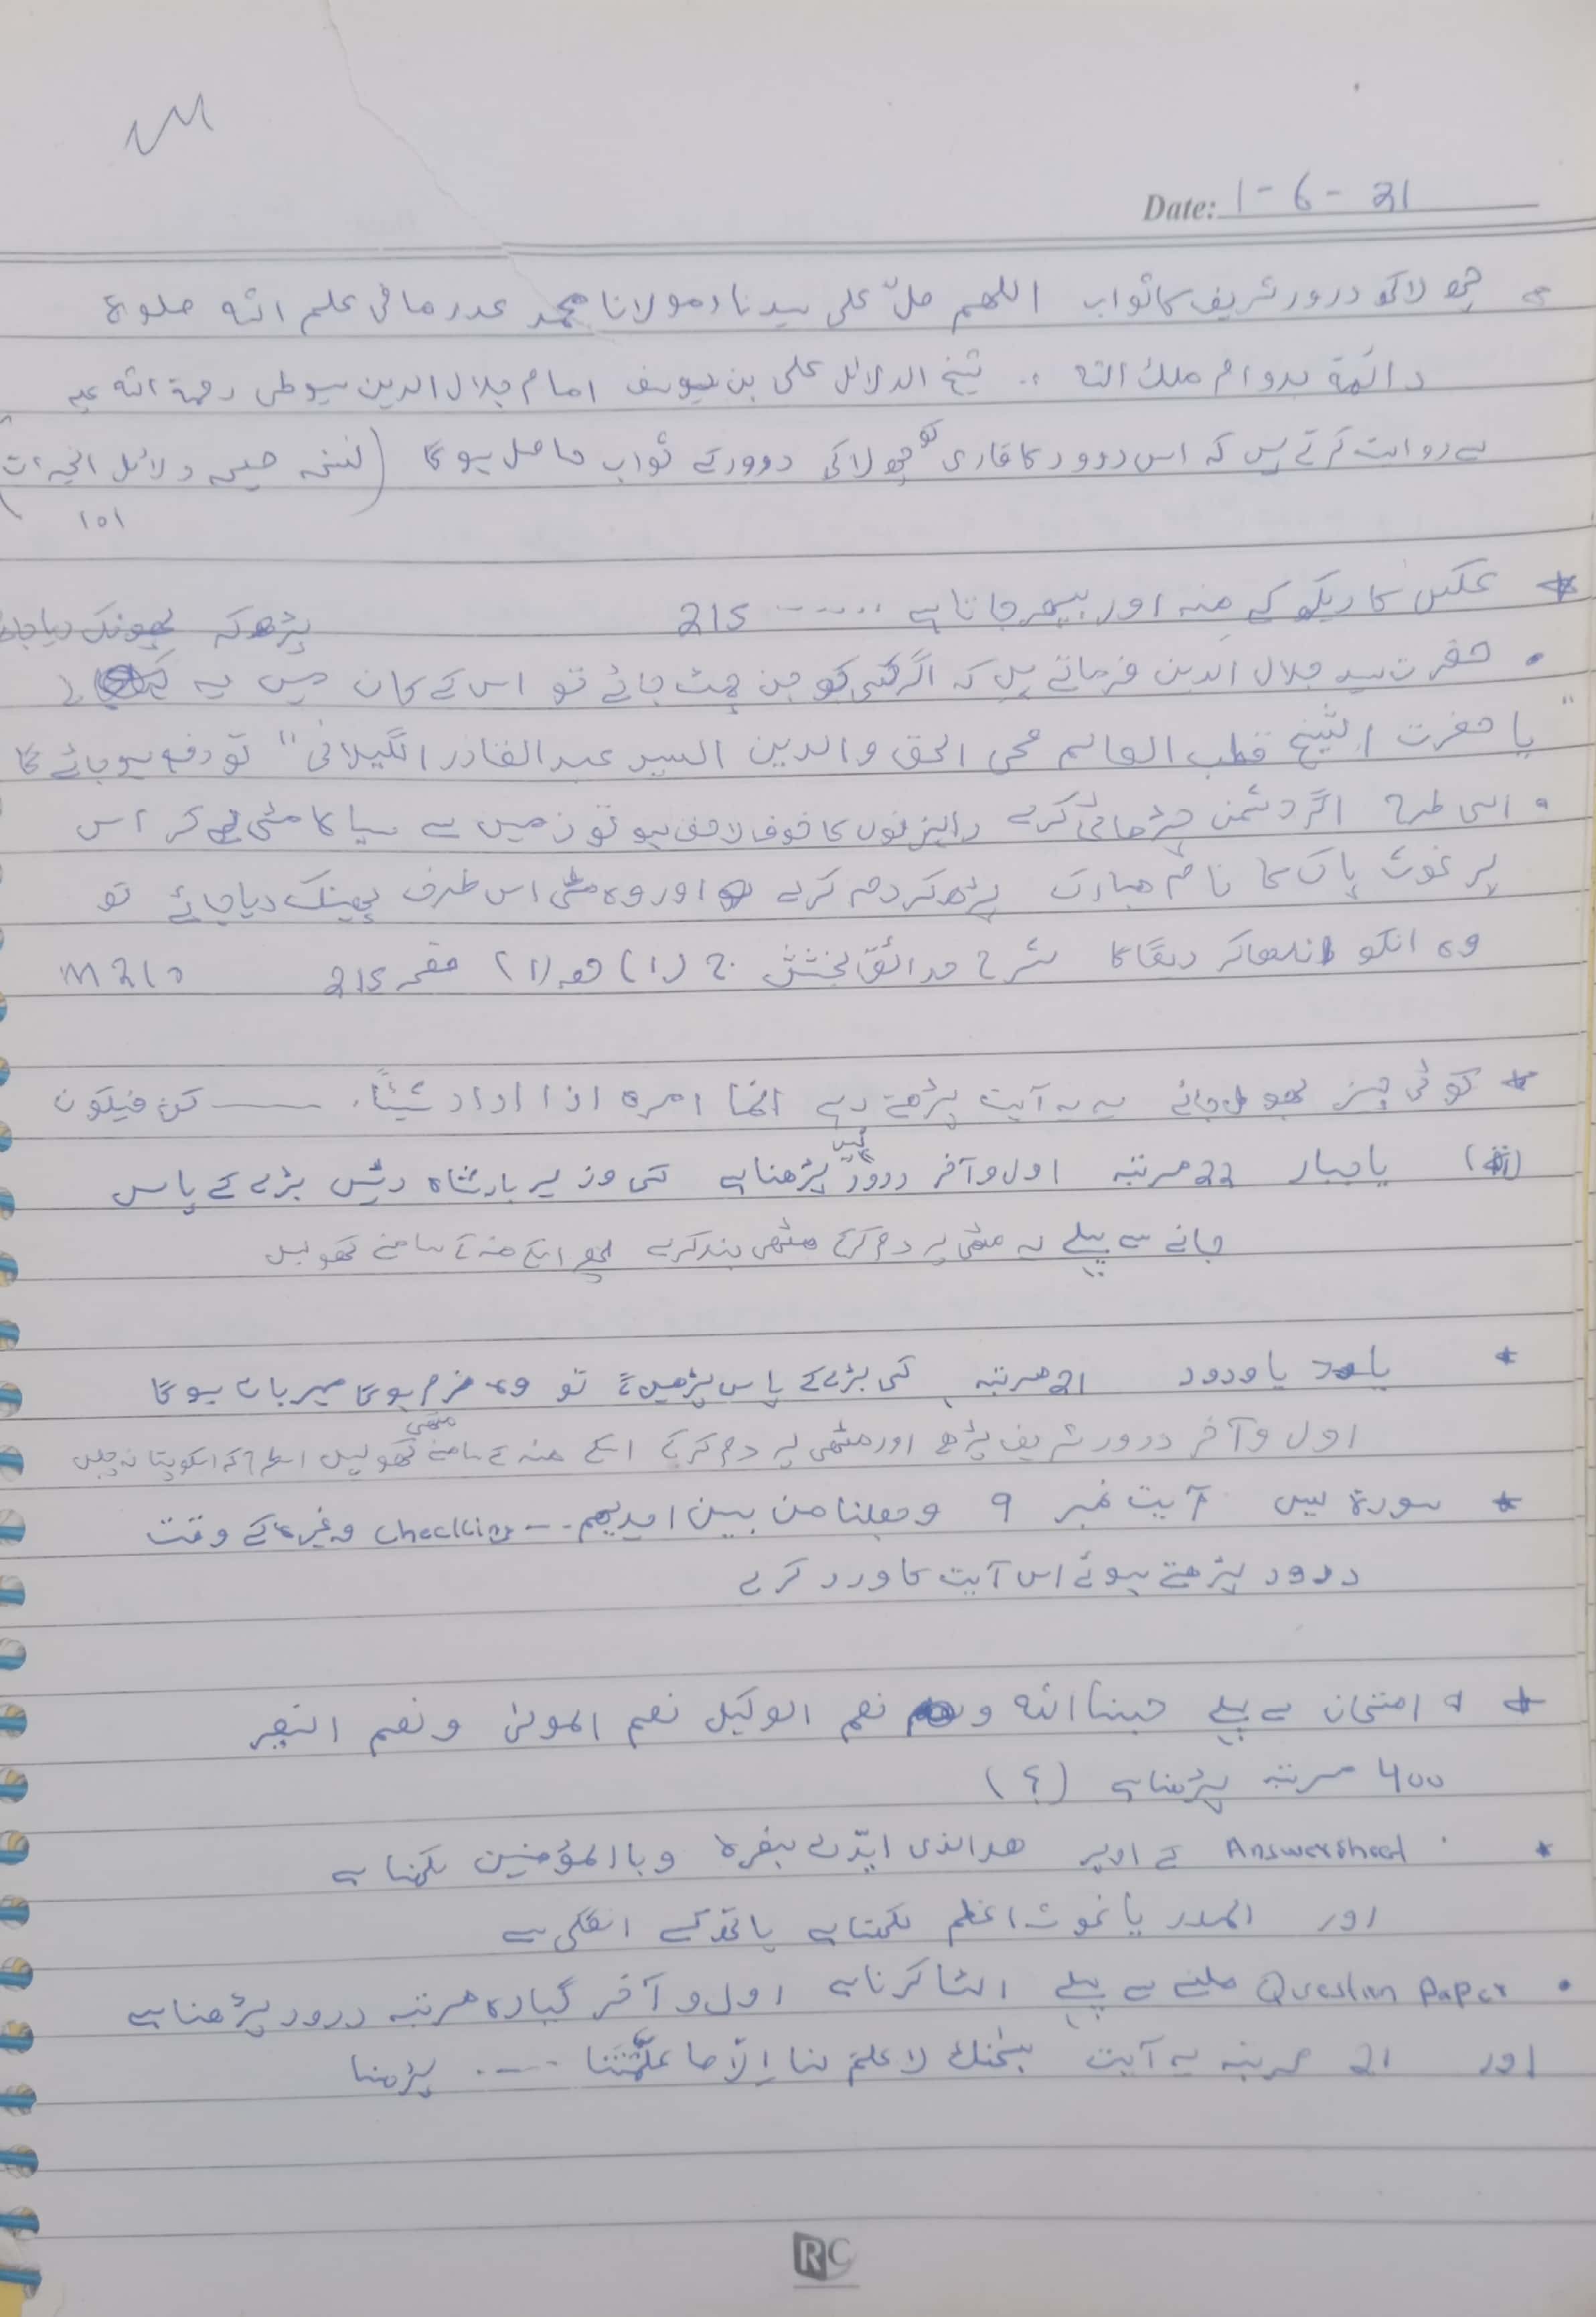 Date: 1-6-21
چھ لاکھ درود شریف کا ثواب اللھم صلّ علی سیدنا ومولانا محمد عدد ما فی علم اللہ صلوۃ
دائمۃ بدوام ملک اللہ .. شیخ الدلائل علی بن یوسف امام جلال الدین سیوطی رحمۃ اللہ علیہ
سے روایت کرتے ہیں کہ اس درود کا قاری کو چھ لاکھ درود کے ثواب حاصل ہوگا (نسخہ صحیحہ دلائل الخیرات
۱۵۱)
* عکس کا دیکھ کے منہ اور بپھر جاتا ہے ...... 215
پڑھ کہ پھونک دیا جائے
• حضرت سید جلال الدین فرماتے ہیں کہ اگر کسی کو جن چمٹ جائے تو اس کے کان میں یہ
"یا حضرت الشیخ قطب العالم محی الحق والدین السید عبد القادر الگیلانی" تو دفع ہو جائے گا
• اسی طرح اگر دشمن چڑھائی کرے راہزنوں کا خوف لاحق ہو تو زمین سے سیاہ مٹی لے کر اس
پر غوث پاک کا نام مبارک پڑھ کر دم کرے اور وہ مٹی اس طرف پھینک دیا جائے تو
وہ انکو اندھا کر دیگا شرح حدائق بخشش ج (۱) حصہ (۱) صفحہ 215
* کوئی چیز بھول جائے یہ آیت پڑھتے رہے انما امرہ اذا اراد شیئاً. ——— کن فیکون
یا جبار 22 مرتبہ اول و آخر درود نہیں پڑھنا ہے کسی وزیر بادشاہ رئیس بڑے کے پاس
جانے سے پہلے یہ مٹھی پر دم کرکے مٹھی بند کرے پھر انکے منہ کے سامنے کھولیں
* یا ودود 21 مرتبہ کسی بڑے کے پاس پڑھیں گے تو وہ نرم ہوگا مہربان ہوگا
اول و آخر درود شریف پڑھ اور مٹھی پر دم کرکے اسکے منہ کے سامنے مٹھی کھولیں اسطرح کہ اسکو پتا نہ چلیں
* سورۃ یس آیت نمبر ۹ وجعلنا من بین ایدیھم... checking وغیرہ کے وقت
درود پڑھتے ہوئے اس آیت کا ورد کرے
* امتحان سے پہلے حسبنا اللہ و نعم الوکیل نعم المولیٰ ونعم النصیر
400 مرتبہ پڑھنا ہے (؟)
* Answersheet کے اوپر ھو الذی ایّدک بنصرہ وبالمؤمنین لکھنا ہے
اور المدد یا غوث اعظم لکھنا ہے ہاتھ کے انگلی سے
• Question paper ملنے سے پہلے الٹا کرنا ہے اول و آخر گیارہ مرتبہ درود پڑھنا ہے
اور 21 مرتبہ یہ آیت سبحٰنک لا علم لنا اِلّا ما علّمتَنا .... پڑھنا
RC